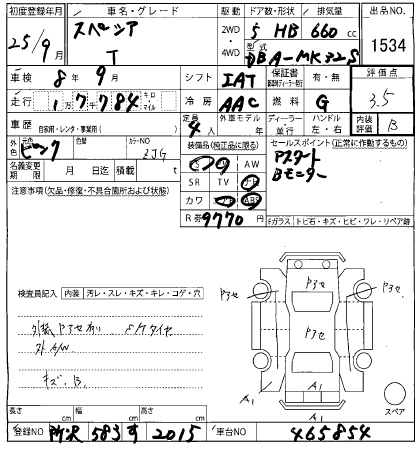 初度登録年月 車名・グレード 駆動 ドア数・形状 排気量 出品NO.
25/9月 スペーシア T 2WD 4WD 5 HB 660 cc 1534
型式 DBA-MK32S
車検 8年9月 シフト IAT 保証書 有・無 評価点 3.5
走行 1万7784 キロ マイル 冷房 AAC 燃料 G
車歴 自家用・レンタ・事業用( ) 定員 4人 外車モデル 年 ディーラー 並行 ハンドル 左・右 内装評価 B
外色 元色 ピンク 色替 カラーNO ZJG 装備品(純正品に限る) セールスポイント(正常に作動するもの)
AW Aスタート
名義変更期限 月 日迄 積載 t SR TV ナビ Bモニター
注意事項(欠品・修復・不具合箇所および状態) カワ エアB ABS
R券 9770 Fガラス トビ石・キズ・ヒビ・ワレ・リペア跡
検査員記入 内装 汚レ・スレ・キズ・キレ・コゲ・穴
外装Pアセ有り
キズ.B.
Pアセ
Pアセ
Pアセ
Pアセ
A1
A1
A1
スペア
長さ cm 幅 cm 高さ cm
登録NO 所沢 583 す 2015 車台NO 465854